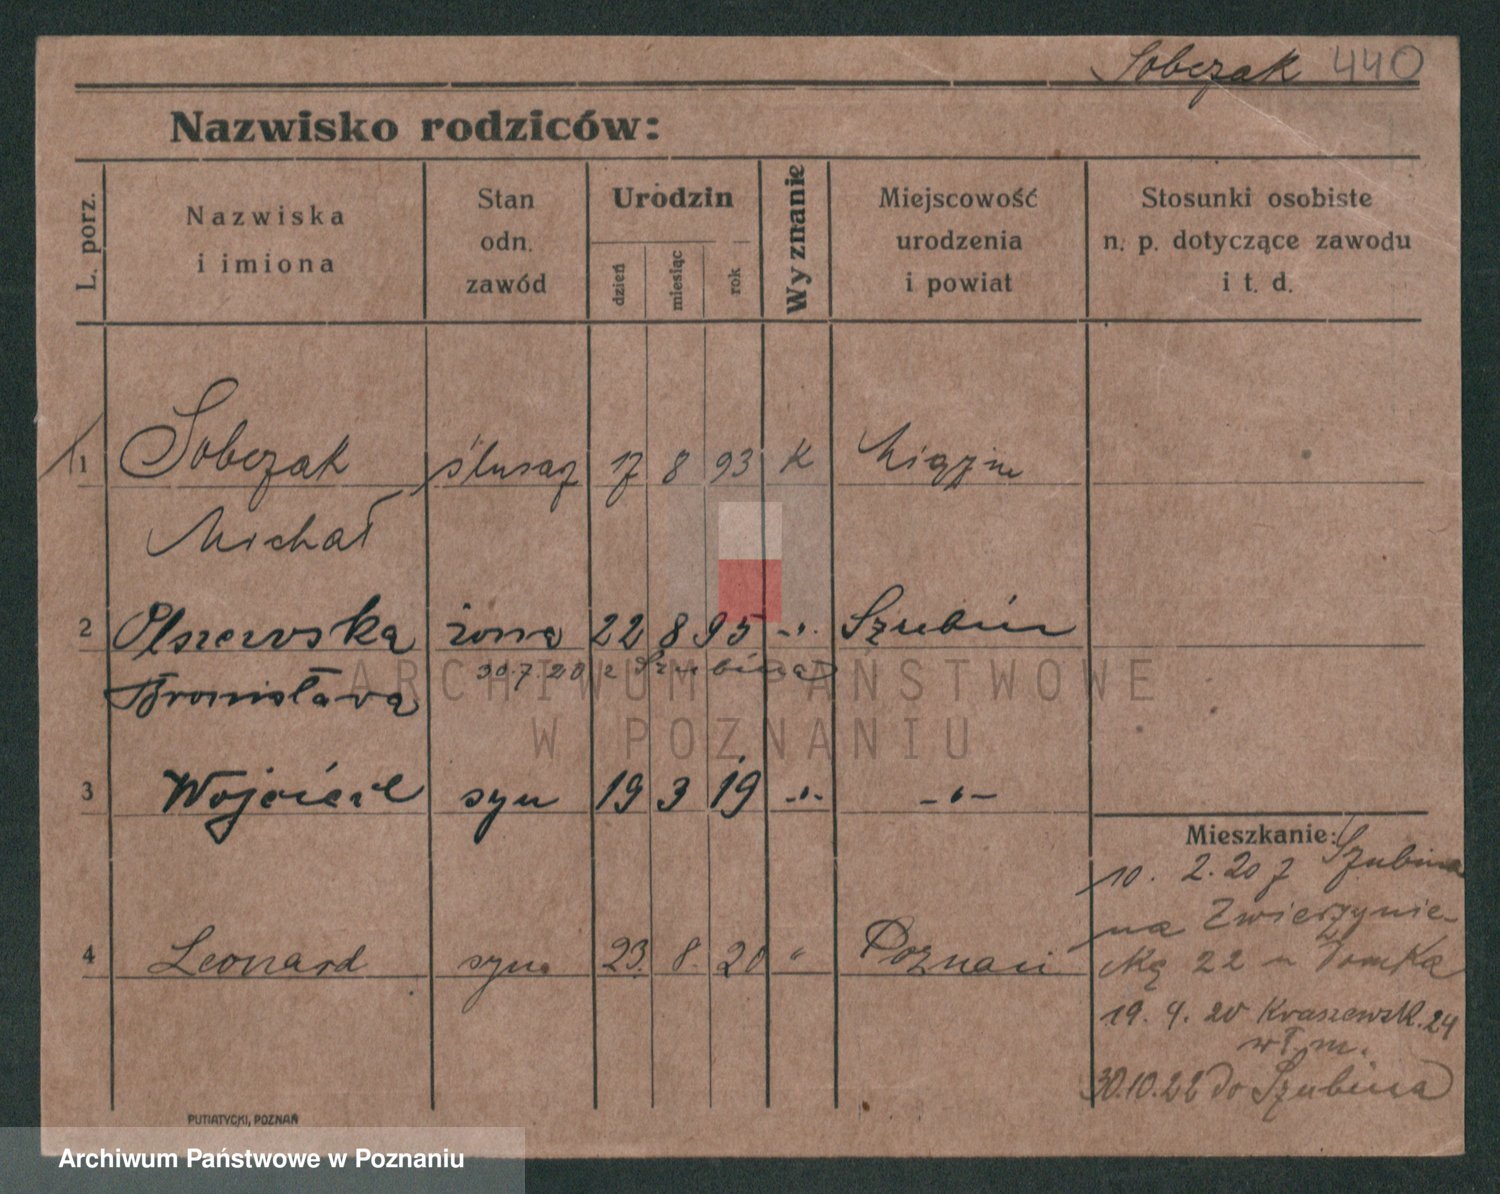 Sobczak 440
Nazwisko rodziców:
L. porz.
Nazwiska
i imiona
Stan
odn.
zawód
Urodzin
dzień
miesiąc
rok
Wyznanie
Miejscowość
urodzenia
i powiat
Stosunki osobiste
n. p. dotyczące zawodu
i t. d.
1 Sobczak ślusarz 17 8 93 K
Michał
2 Olszewska żona 22 8 95 -"- Szubin
30.7.20 z Szubina
Bronisława
3 Wojciech syn 19 3 19 -"- -"-
Mieszkanie:
10. 2. 20 z Szubina
na Zwierzynie-
cką 22 u Tomka
4 Leonard syn 23. 8. 20 " Poznań
19. 4. 20 Kraszewsk. 24
wł. m.
30.10.22 do Szubina
PUTIATYCKI, POZNAŃ
ARCHIWUM PAŃSTWOWE
W POZNANIU
Archiwum Państwowe w Poznaniu